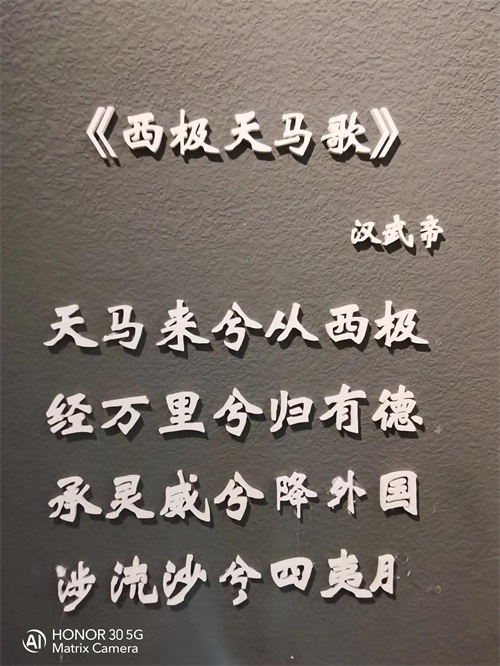 《西极天马歌》
汉武帝
天马来兮从西极
经万里兮归有德
承灵威兮降外国
涉流沙兮四夷月
AI HONOR 30 5G
Matrix Camera